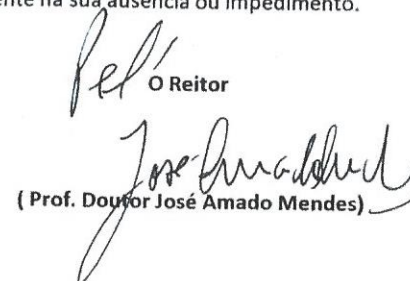 ente na sua ausência ou impedimento.
Pel' O Reitor
José Amadeu
( Prof. Doutor José Amado Mendes)